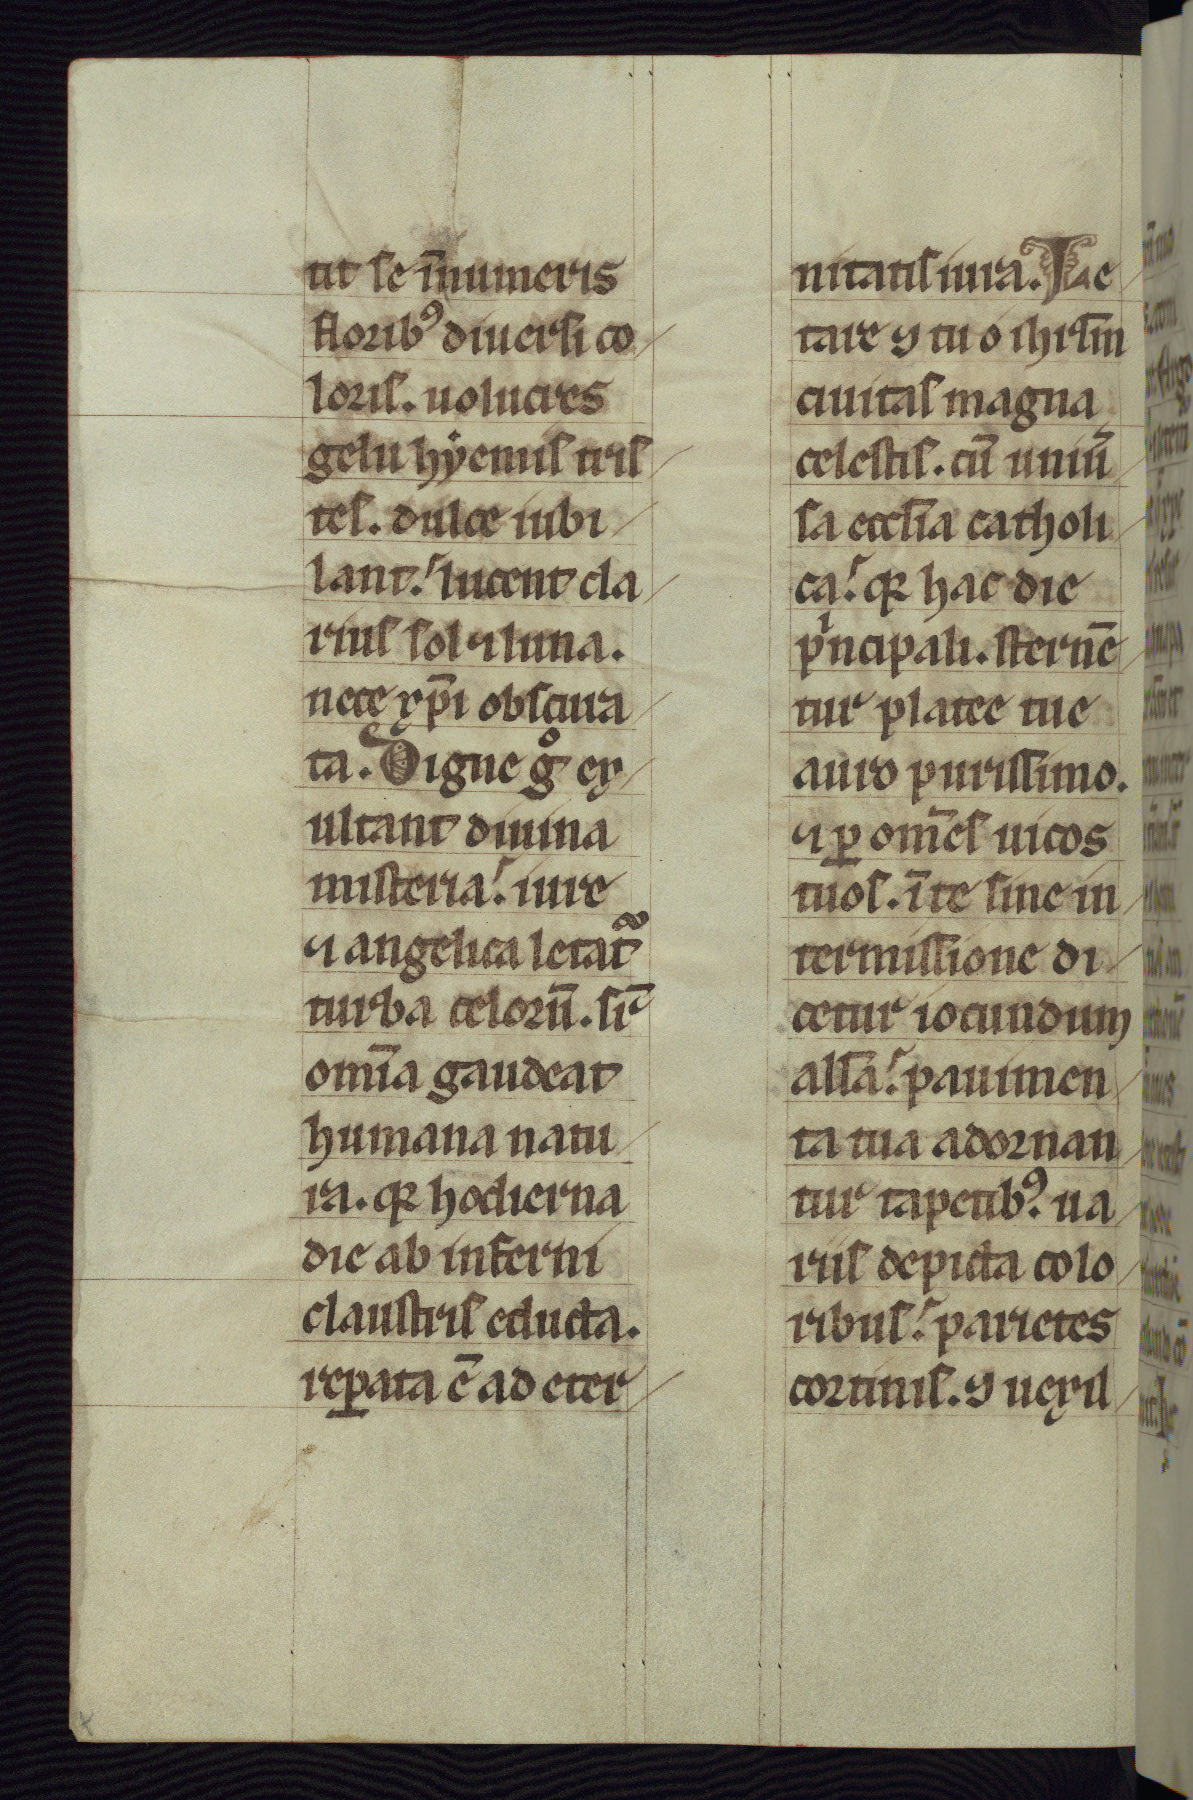 tit se īnumeris
floribꝰ diuersi co
loris. uolucres
gelu hẏemis tris
tes. dulce iubi
lant. lucent cla
rius sol ⁊ luna.
nece xp̄i obscura
ta. Digne gͦ ex
ultant diuina
misteria. iure
⁊ angelica letat᷑
turba celoꝝ. sic̄
om̄ia gaudeat
humana natu
ra. qꝛ hodierna
die ab inferni
claustris educta.
reꝑata ē ad eter
nitatis iura. Le
tare ꝯ tu o ihrl̄m
ciuitas magna
celestis. cū uniū
sa eccl̄ia catholi
ca. qꝛ hac die
pⁱncipali. sternē
tur platee tue
auro purissimo.
⁊ ꝑ om̄es uicos
tuos. ī te sine in
termissione di
cetur iocundum
all̄a. pauimen
ta tua adornan
tur tapetibꝰ. ua
riis depicta colo
ribus. parietes
cortinis. ꝯ uexil